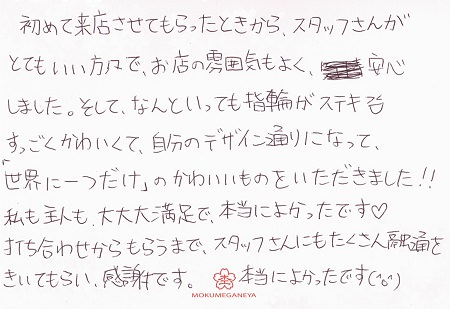 初めて来店させてもらったときから、スタッフさんが
とてもいい方々で、お店の雰囲気もよく、安心
しました。そして、なんといっても指輪がステキ
すっごくかわいくて、自分のデザイン通りになって、
「世界に一つだけ」のかわいいものをいただきました!!
私も主人も、大大大満足で、本当によかったです♡
打ち合わせからもらうまで、スタッフさんにもたくさん融通を
きいてもらい、感謝です。 本当によかったです(^o^)
MOKUMEGANEYA